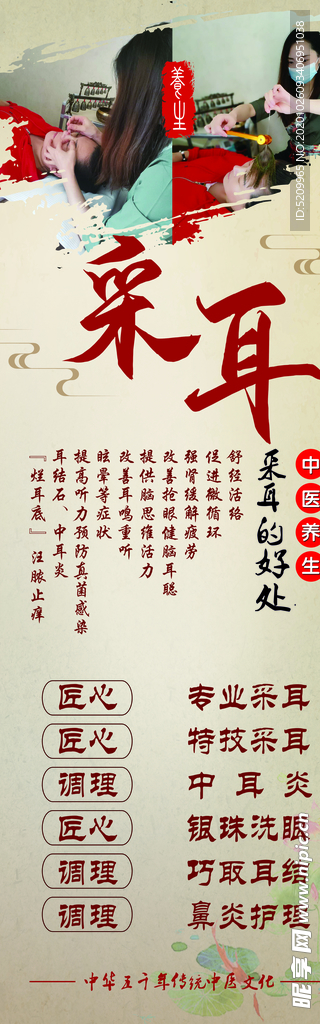 养生
采耳
中医养生
采耳的好处
舒经活络
促进微循环
强肾缓解疲劳
改善抢眼健脑耳聪
提供脑思维活力
改善耳鸣重听
眩晕等症状
提高听力预防真菌感染
耳结石、中耳炎
『烂耳底』汪脓止痒
匠心 专业采耳
匠心 特技采耳
调理 中耳炎
匠心 银珠洗眼
调理 巧取耳结
调理 鼻炎护理
中华五千年传统中医文化
昵享网 www.nipic.cn
ID:5209965 NO:20201026093406951038